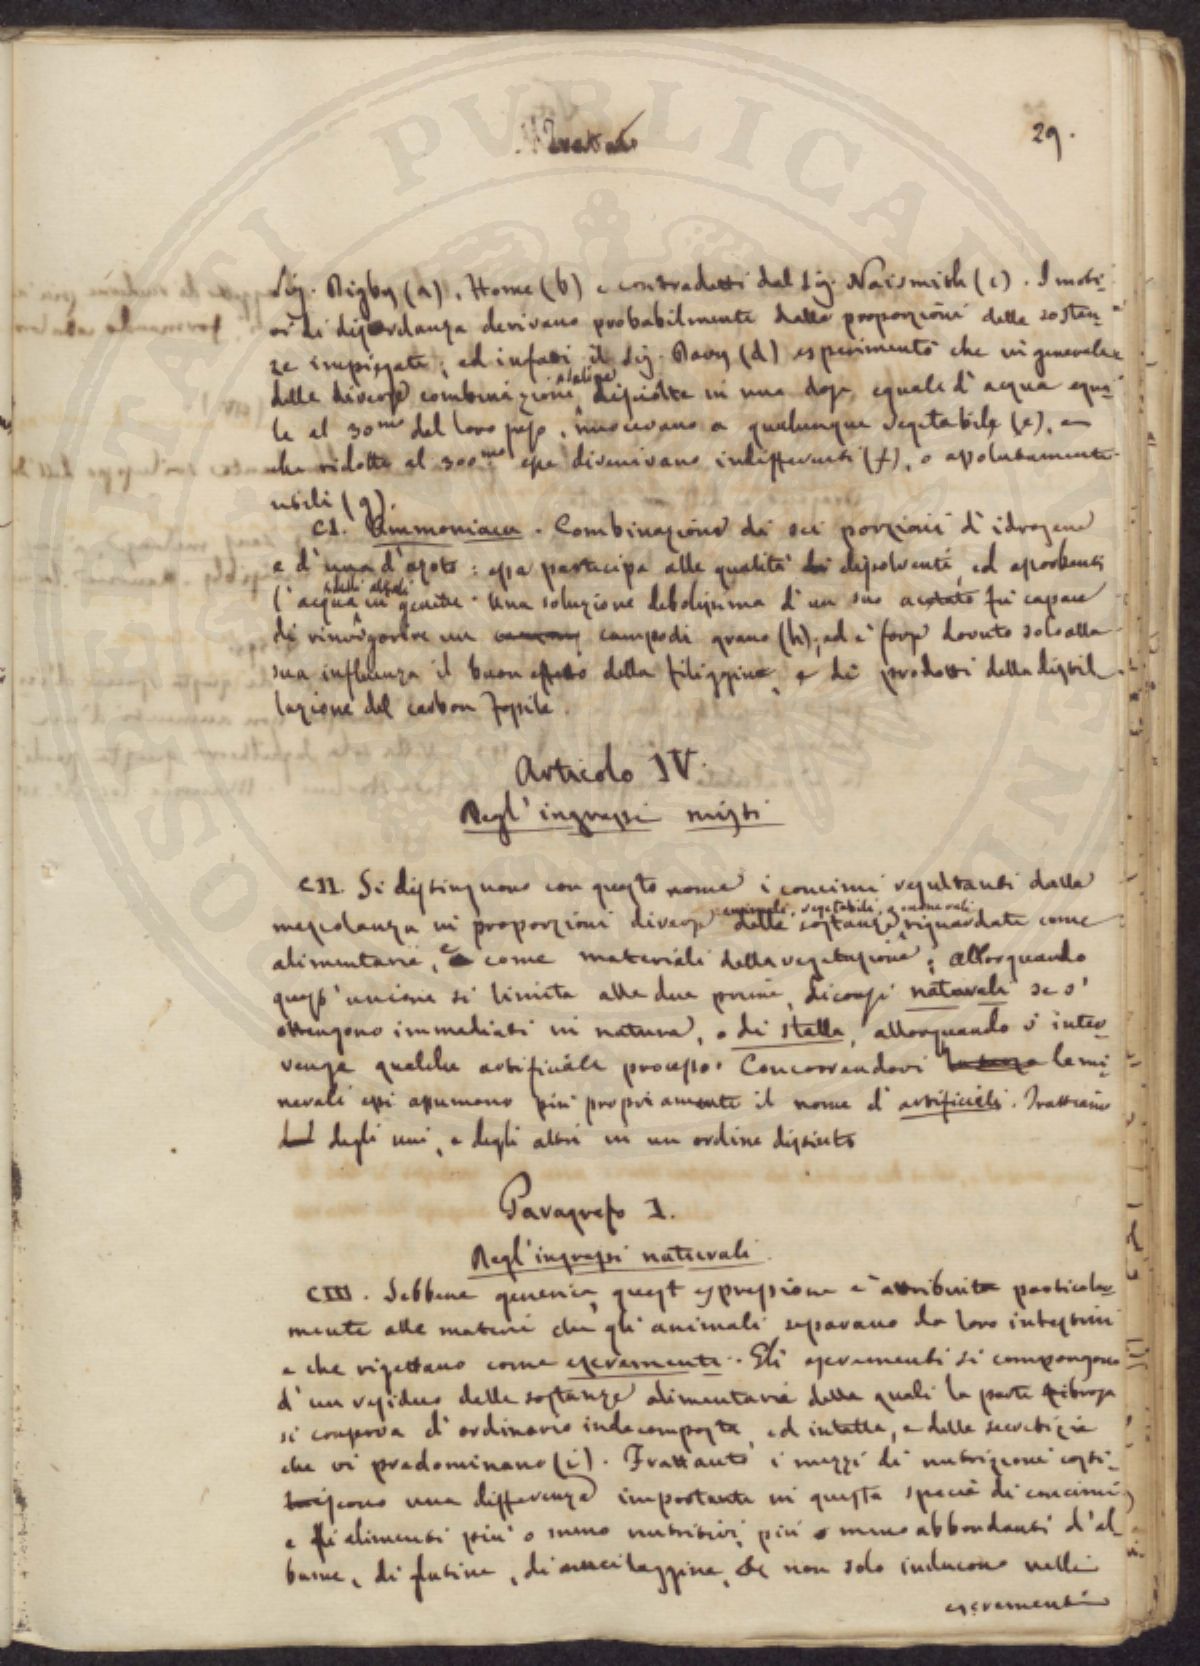 29.
Sig. Rigby (a), Home (b) e contradetti dal Sig. Naismith (c). I moti-
vi di discordanza derivano probabilmente dalle proporzioni delle sostan-
ze impiegate; ed infatti il Sig. Davy (d) esperimentò che in generale
saline
delle diverse combinazione, disciolte in una dose eguale d'acqua equa-
le al 30mo del loro peso, nuocevano a qualunque vegetabile (e), e
che ridotte al 300mo esse divenivano indifferenti (f), o assolutamente
utili (g).
CI. Ammoniaca. Combinazione di sei porzioni d'idrogene
e d'una d'azoto: essa partecipa alle qualità di dissolventi, ed assorbenti
degli alcali
l'acqua in genere. Una soluzione debolissima d'un suo acetato fu capace
di rinvigorire un campo di grano (h), ed è forse dovuto solo alla
sua influenza il buon effetto della filiggine, e di prodotti della distil
lazione del carbon fossile.
Articolo IV.
Degl'ingrassi misti
CII. Si distinguono con questo nome i concimi resultanti dalla
animali, vegetabili, e minerali
mescolanza in proporzioni diverse delle sostanze riguardate come
alimentarie, e come materiali della vegetazione; allorquando
quest'unione si limita alle due prime, diconsi naturali se s'
ottengono immediati in natura, o di stalla, allorquando v'inter-
venga qualche artificiale processo. Concorrendovi le mi-
nerali essi assumono più propriamente il nome d'artificieli. Trattiamo
degli uni, e degli altri in un ordine distinto
Paragrafo I.
Degl'ingrassi naturali.
CIII. Sebbene generica, quest'espressione è attribuita particolar-
mente alle materie che gli animali separano da loro intestini
e che rigettano come escremente. Gli escrementi si compongono
d'un residuo delle sostanze alimentarie delle quali la parte fibrosa
si conserva d'ordinario indecomposta, ed intatta, e delle secretizie
che vi predominano (i). Frattanto i mezzi di nutrizione costi-
tuiscono una differenza importante in questa specie di concimi,
e gli alimenti più o meno nutritivi, più o meno abbondanti d'al-
bume, di glutine, di mucilaggine, &c non solo inducono nelli
escrementi